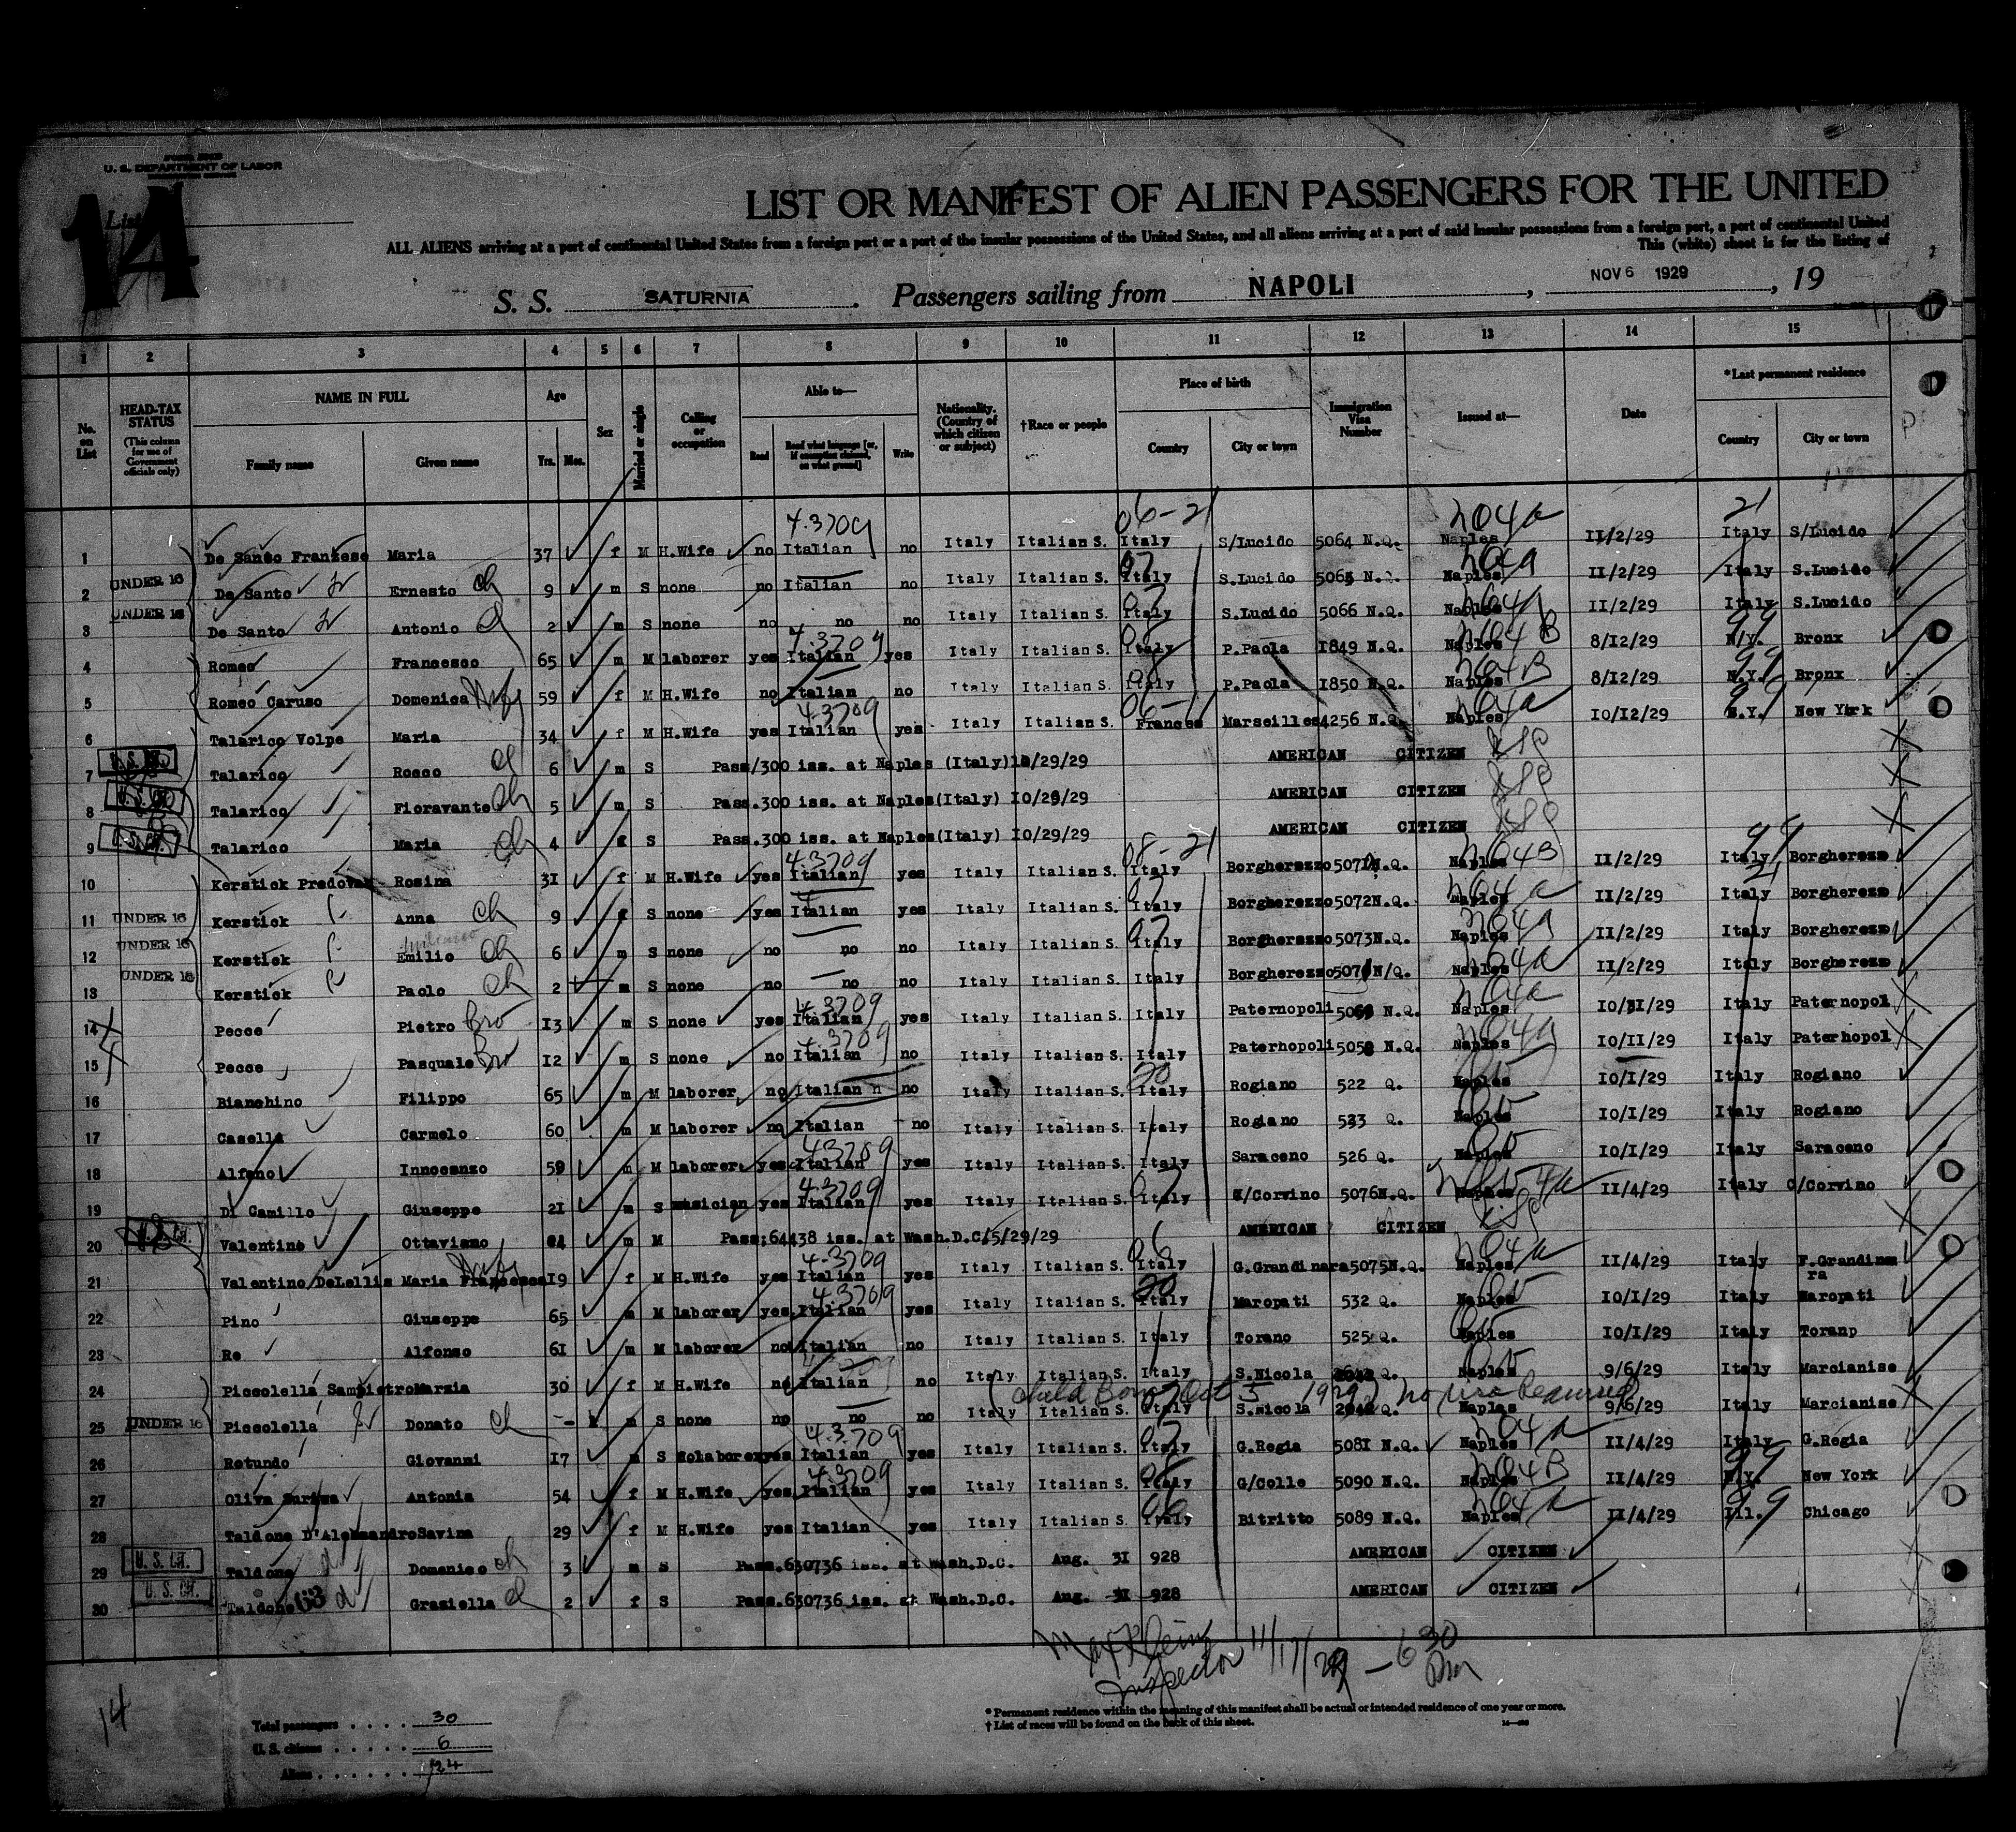 U. S. DEPARTMENT OF LABOR
List 14
LIST OR MANIFEST OF ALIEN PASSENGERS FOR THE UNITED
ALL ALIENS arriving at a port of continental United States from a foreign port or a port of the insular possessions of the United States, and all aliens arriving at a port of said insular possessions from a foreign port, a port of continental United
This (white) sheet is for the listing of
S. S. SATURNIA. Passengers sailing from NAPOLI, NOV 6 1929, 19
1 2 3 4 5 6 7 8 9 10 11 12 13 14 15
No. on List
HEAD-TAX STATUS (This column for use of Government officials only)
NAME IN FULL Family name Given name
Age Yrs. Mos.
Sex
Married or single
Calling or occupation
Able to— Read Read what language [or, if exemption claimed, on what ground] Write
Nationality. (Country of which citizen or subject)
†Race or people
Place of birth Country City or town
Immigration Visa Number
Issued at—
Date
*Last permanent residence Country City or town
1 De Santo Franzese Maria 37 f M H.Wife no Italian no Italy Italian S. Italy S/Lucido 5064 N.Q. Naples 11/2/29 Italy S/Lucido
2 UNDER 16 De Santo Ernesto ch 9 m S none no Italian no Italy Italian S. Italy S.Lucido 5065 N.Q. Naples 11/2/29 Italy S.Lucido
3 UNDER 16 De Santo Antonio ch 2 m S none no no no Italy Italian S. Italy S.Lucido 5066 N.Q. Naples 11/2/29 Italy S.Lucido
4 Romeo Francesco 65 m M laborer yes Italian yes Italy Italian S. Italy P.Paola 1849 N.Q. Naples 8/12/29 N/Y. Bronx
5 Romeo Caruso Domenica Wife 59 f M H.Wife no Italian no Italy Italian S. Italy P.Paola 1850 N.Q. Naples 8/12/29 N.Y. Bronx
6 Talarico Volpe Maria 34 f M H.Wife yes Italian yes Italy Italian S. France Marseilles 4256 N.Q. Naples 10/12/29 N.Y. New York
7 U.S. Talarico Rosco ch 6 m S Pass/300 iss. at Naples (Italy) 10/29/29 AMERICAN CITIZEN
8 U.S. Talarico Fioravante ch 5 m S Pass.300 iss. at Naples(Italy) 10/29/29 AMERICAN CITIZEN
9 U.S. CIT. Talarico Maria ch 4 f S Pass.300 iss. at Naples(Italy) 10/29/29 AMERICAN CITIZEN
10 Kerstick Predovan Rosina 31 f M H.Wife yes Italian yes Italy Italian S. Italy Borgherezzo 5071 N.Q. Naples 11/2/29 Italy Borgherezzo
11 UNDER 16 Kerstick Anna ch 9 f S none yes Italian yes Italy Italian S. Italy Borgherezzo 5072N.Q. Naples 11/2/29 Italy Borgherezzo
12 UNDER 16 Kerstick Emilio ch 6 m S none no no no Italy Italian S. Italy Borgherezzo 5073N.Q. Naples 11/2/29 Italy Borgherezzo
13 UNDER 16 Kerstick Paolo ch 2 m S none no no no Italy Italian S. Italy Borgherezzo N/Q. Naples 11/2/29 Italy Borgherezzo
14 Pecce Pietro Bro 13 m S none yes Italian yes Italy Italian S. Italy Paternopoli N.Q. Naples 10/31/29 Italy Paternopol
15 Pecce Pasquale Bro 12 m S none no Italian no Italy Italian S. Italy Paterhopoli 5058 N.Q. Naples 10/11/29 Italy Paterhopol
16 Bianchino Filippo 65 m M laborer no Italian n no Italy Italian S. Italy Rogiano 522 Q. Naples 10/1/29 Italy Rogiano
17 Casella Carmelo 60 m M laborer no Italian no Italy Italian S. Italy Rogiano 523 Q. Naples 10/1/29 Italy Rogiano
18 Alfano Innocenzo 59 m M laborer yes Italian yes Italy Italian S. Italy Saraceno 526 Q. Naples 10/1/29 Italy Saraceno
19 Di Camillo Giuseppe 21 m S musician yes Italian yes Italy Italian S. Italy /Corvino 5076N.Q. Naples 11/4/29 Italy C/Corvino
20 Valentino Ottaviamo m M Pass:64438 iss. at Wash.D.C/5/29/29 AMERICAN CITIZEN
21 Valentino DeLellis Maria Francesca 19 f M H.Wife yes Italian yes Italy Italian S. Italy G.Grandinara 5075N.Q. Naples 11/4/29 Italy F.Grandinara
22 Pino Giuseppe 65 m M laborer yes Italian yes Italy Italian S. Italy Maropati 532 Q. Naples 10/1/29 Italy Maropati
23 Re Alfonso 61 m M laborer no Italian no Italy Italian S. Italy Torano 525 Q. Naples 10/1/29 Italy Toranp
24 Piccolella Sampietro Marzia 30 f M H.Wife no Italian no Italy Italian S. Italy S.Nicola Q. Naples 9/6/29 Italy Marcianise
(Child Born Oct 5 1929) no visa required
25 UNDER 16 Piccolella Donato ch m S none no no no Italy Italian S. Italy S.Nicola Q. Naples 9/6/29 Italy Marcianise
26 Rotundo Giovanni 17 m S yes Italian yes Italy Italian S. Italy G.Regia 5081 N.Q. Naples 11/4/29 Italy G.Regia
27 Oliva Antonia 54 f M H.Wife yes Italian yes Italy Italian S. Italy G/Colle 5090 N.Q. Naples 11/4/29 N.Y. New York
28 Taldone D'Alessandro Savina 29 f M H.Wife yes Italian yes Italy Italian S. Italy Bitritto 5089 N.Q. Naples 11/4/29 Ill. Chicago
29 U. S. CIT. Taldone Domenico ch 3 m S Pass.630736 iss. at Wash.D.C. Aug. 31 928 AMERICAN CITIZEN
30 U. S. CIT. Taldone Graziella ch 2 f S Pass.630736 iss. at Wash.D.C. Aug. 31 928 AMERICAN CITIZEN
Max Klein
Inspector 11/17/29 – 6 30 Pm
* Permanent residence within the meaning of this manifest shall be actual or intended residence of one year or more.
† List of races will be found on the back of this sheet.
14
Total passengers . . . . 30
U. S. citizens . . . . . 6
Aliens . . . . . . 24